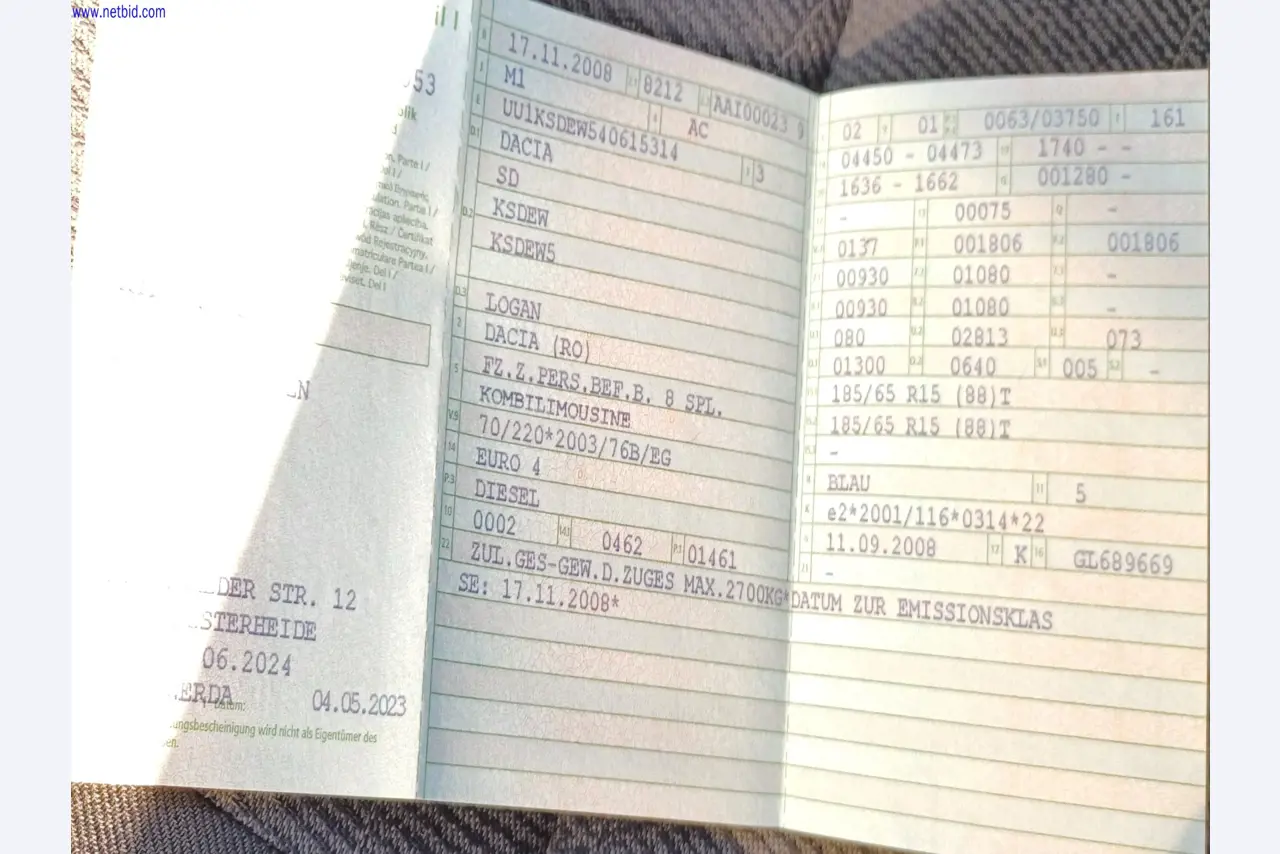 www.netbid.com
il I
53
blik
n, Parte I /
Del I /
DER STR. 12
STERHEIDE
06.2024
ERDA
Datum:
04.05.2023
ungsbescheinigung wird nicht als Eigentümer des
en.
17.11.2008 8212 AAI00023 9
M1 AC
UU1KSDEW540615314 3
DACIA
SD
KSDEW
KSDEW5
LOGAN
DACIA (RO)
FZ.Z.PERS.BEF.B. 8 SPL.
KOMBILIMOUSINE
70/220*2003/76B/EG
EURO 4
DIESEL
0002 0462 01461
ZUL.GES-GEW.D.ZUGES MAX.2700KG*DATUM ZUR EMISSIONSKLAS
SE: 17.11.2008*
02 01 0063/03750 161
04450 - 04473 1740 - -
1636 - 1662 001280 -
- 00075 -
0137 001806 001806
00930 01080 -
00930 01080 -
080 02813 073
01300 0640 005 -
185/65 R15 (88)T
185/65 R15 (88)T
-
BLAU 5
e2*2001/116*0314*22
11.09.2008 K GL689669
-